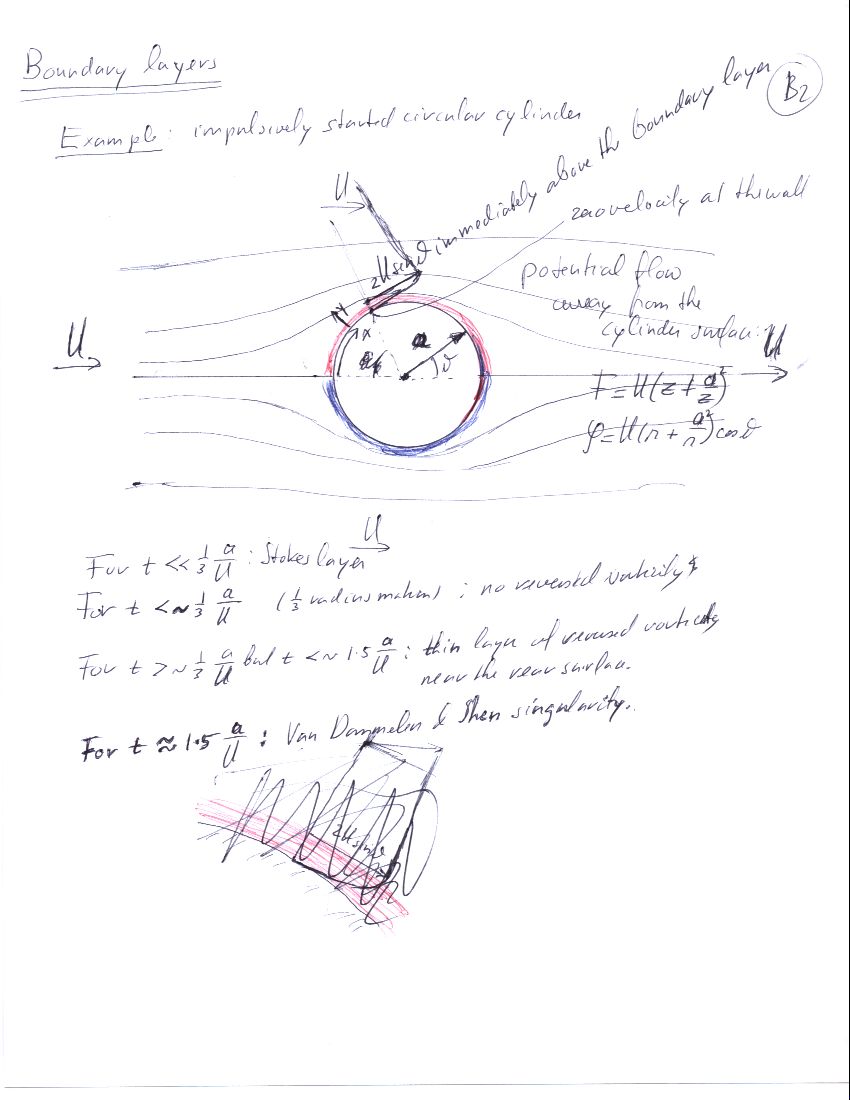 Boundary layers
B2
Example: impulsively started circular cylinder
U
2U sinϑ immediately above the boundary layer
zero velocity at the wall
potential flow
away from the
cylinder surface:
U
U
y
x
a
ϑ
F = U(z + a²/z)
φ = U(r + a²/r) cosϑ
U
For t << 1/3 a/U : Stokes layer
For t <~ 1/3 a/U (1/3 radius motion) : no reversed vorticity
For t >~ 1/3 a/U but t <~ 1.5 a/U : thin layer of reversed vorticity
near the rear surface.
For t ≈ 1.5 a/U : Van Dommelen & Shen singularity.
2U sinϑ